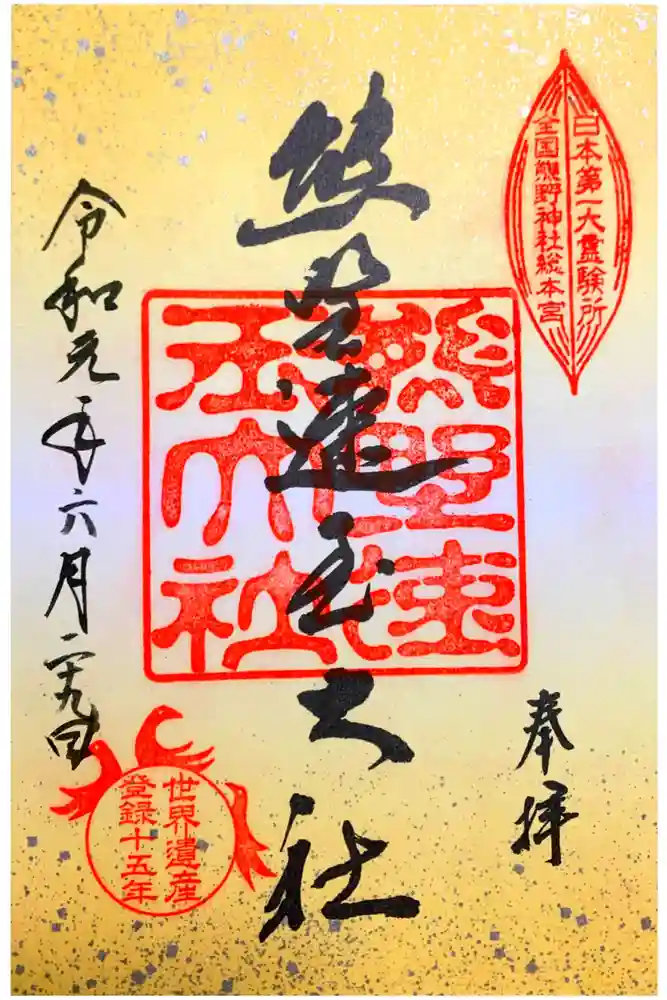 日本第一大霊験所
全国熊野神社総本宮
奉拝
熊野速玉大社
熊野速玉大社
令和元年六月二十九日
世界遺産
登録十五年